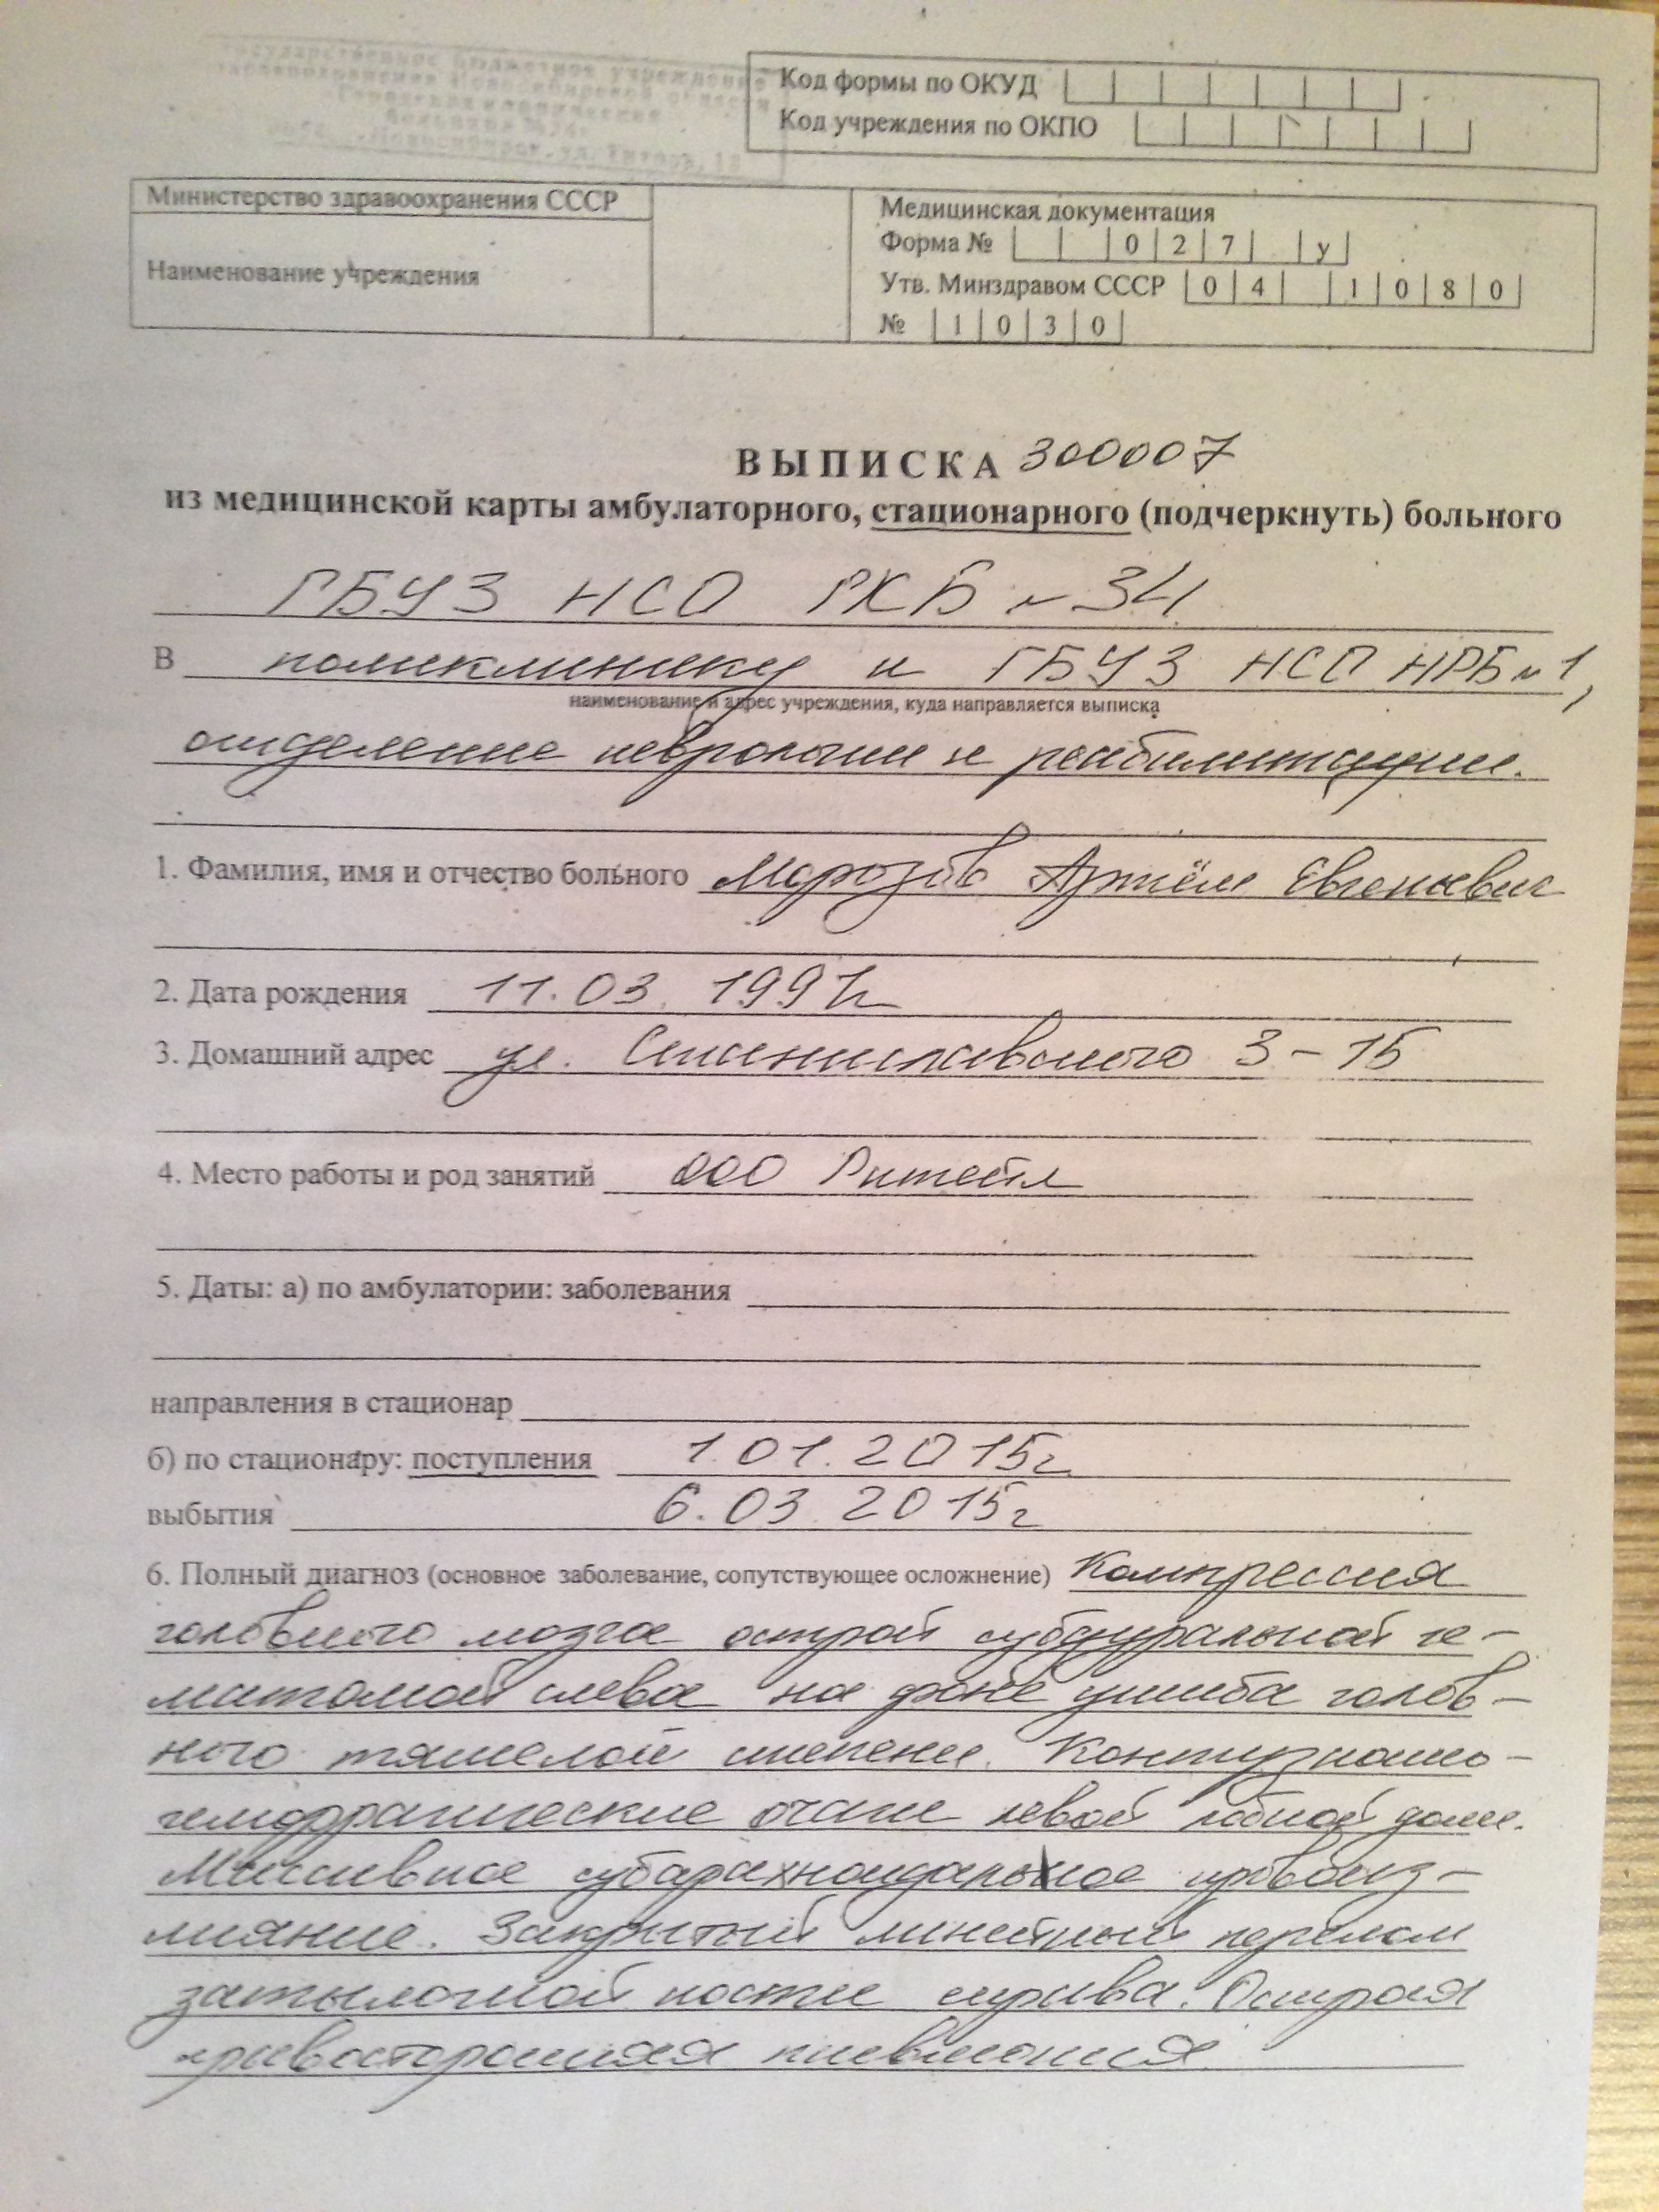 Государственное бюджетное учреждение
здравоохранения Новосибирской области
Городская клиническая
больница №34
Новосибирск, ул. Титова, 18
Код формы по ОКУД
Код учреждения по ОКПО
Министерство здравоохранения СССР
Наименование учреждения
Медицинская документация
Форма № 0 2 7 у
Утв. Минздравом СССР 0 4 1 0 8 0
№ 1 0 3 0
ВЫПИСКА 300007
из медицинской карты амбулаторного, стационарного (подчеркнуть) больного
ГБУЗ НСО ГКБ №34
В поликлинику и ГБУЗ НСО НРБ №1,
наименование и адрес учреждения, куда направляется выписка
отделение неврологии и реабилитации.
1. Фамилия, имя и отчество больного Морозов Артём Евгеньевич
2. Дата рождения 11.03.1997г
3. Домашний адрес ул. Станиславского 3-15
4. Место работы и род занятий ООО Ритейл
5. Даты: а) по амбулатории: заболевания
направления в стационар
б) по стационару: поступления 1.01.2015г
выбытия 6.03.2015г
6. Полный диагноз (основное заболевание, сопутствующее осложнение) Компрессия
головного мозга острой субдуральной ге-
матомой слева на фоне ушиба голов-
ного тяжелой степени. Контузионно-
геморрагические очаги левой лобной доли.
Массивное субарахноидальное кровоиз-
лияние. Закрытый линейный перелом
затылочной кости справа. Острая
правосторонняя пневмония.